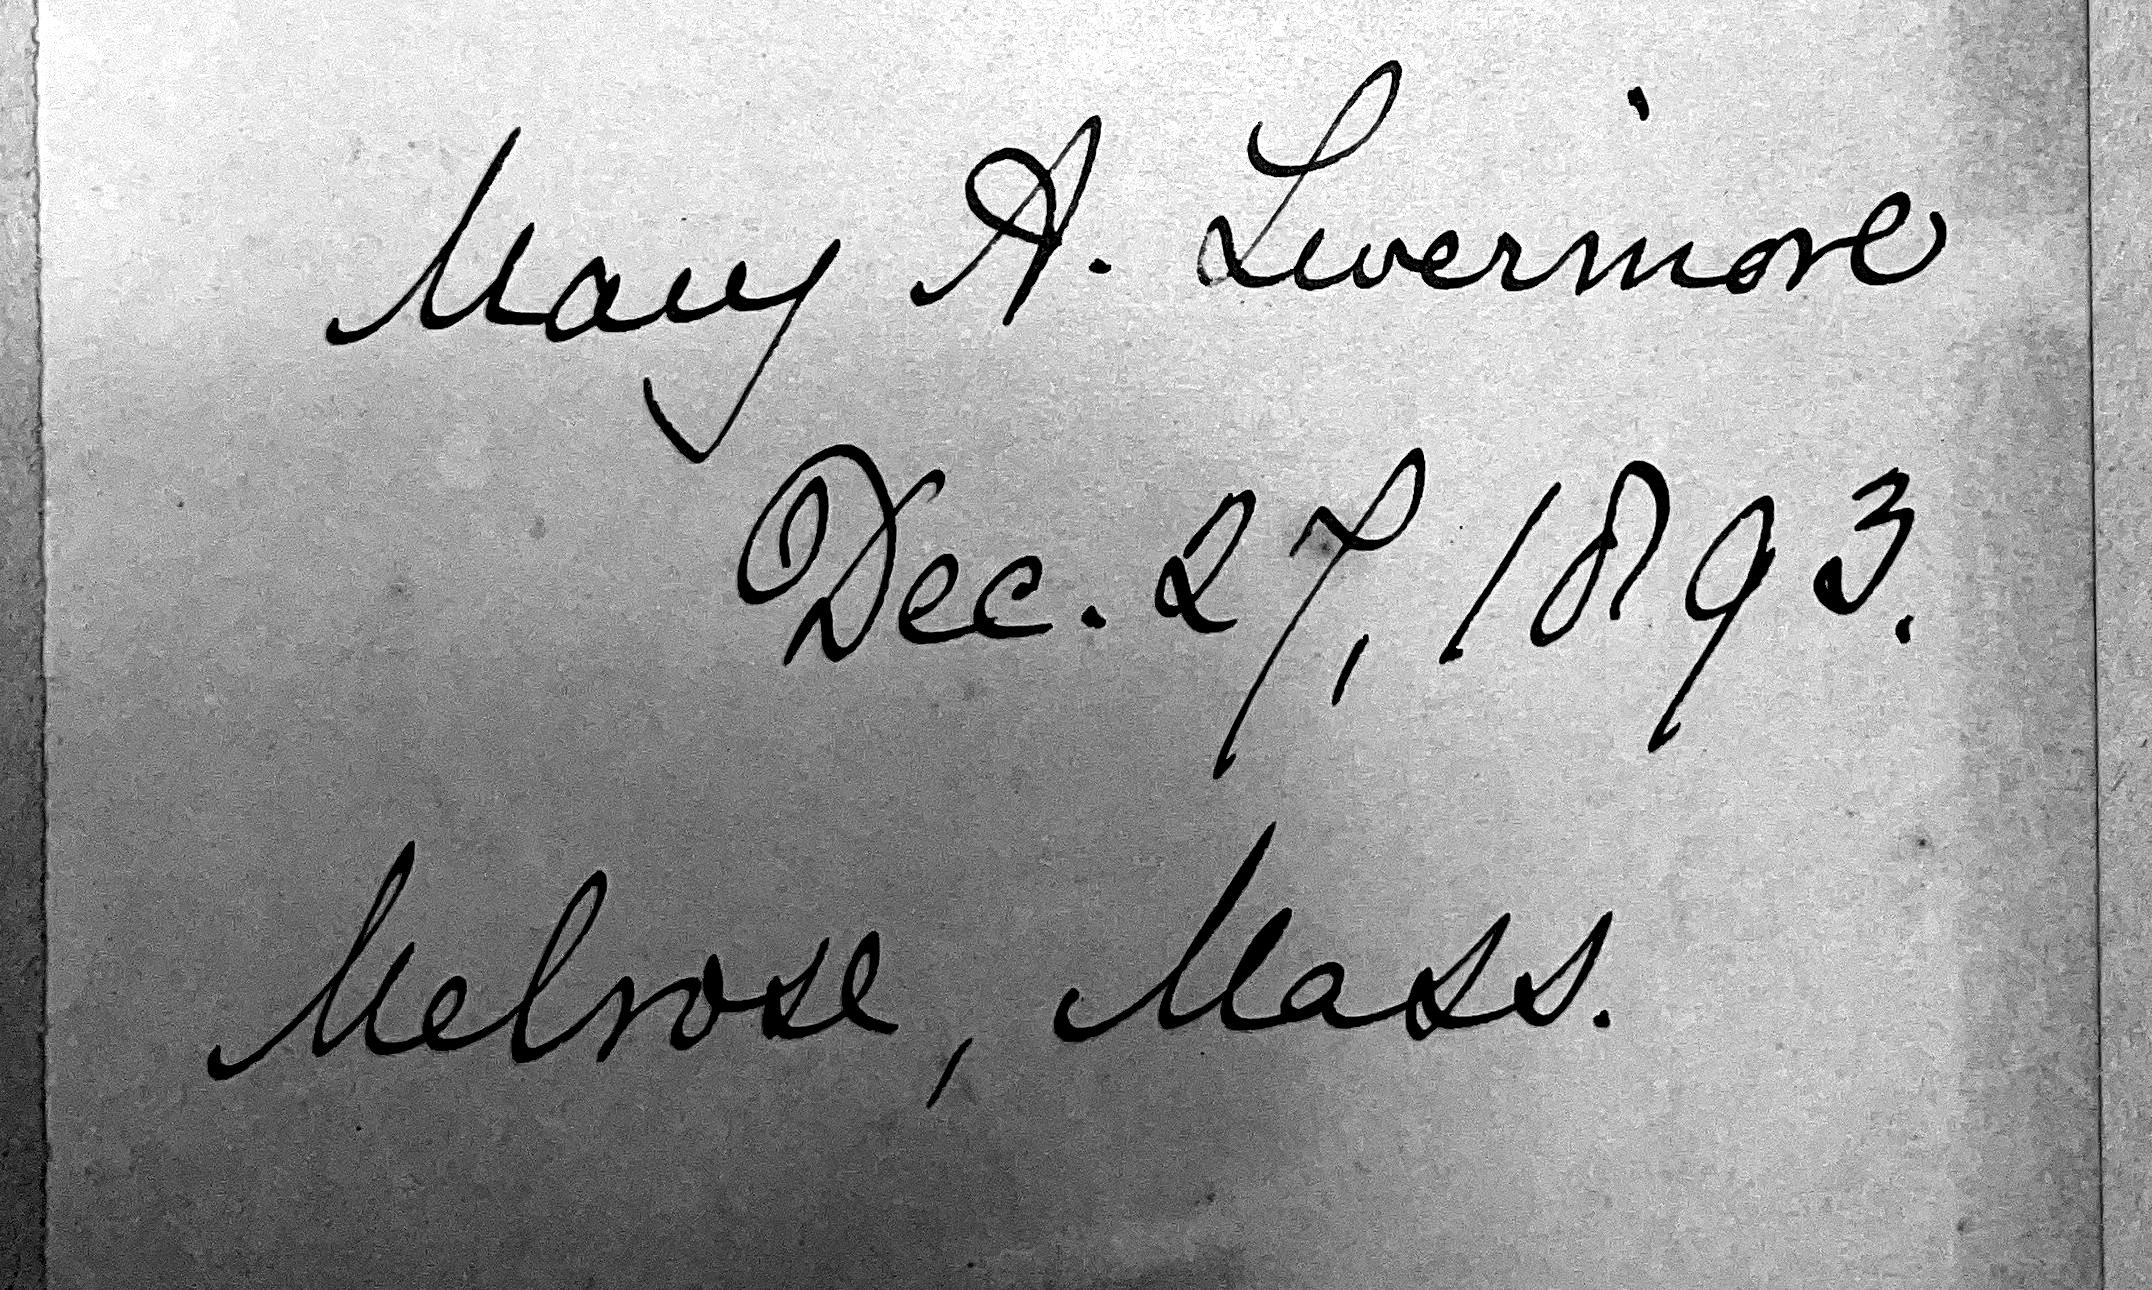 Mary A. Livermore
Dec. 27, 1893.
Melrose, Mass.